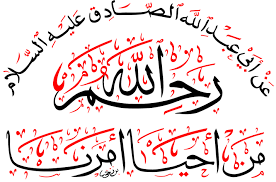 عَنْ أَبِي عَبْدِ اللّٰهِ الصَّادِقِ عَلَيْهِ السَّلَام
رَحِمَ اللّٰهُ
مَنْ أَحْيَا أَمْرَنَا